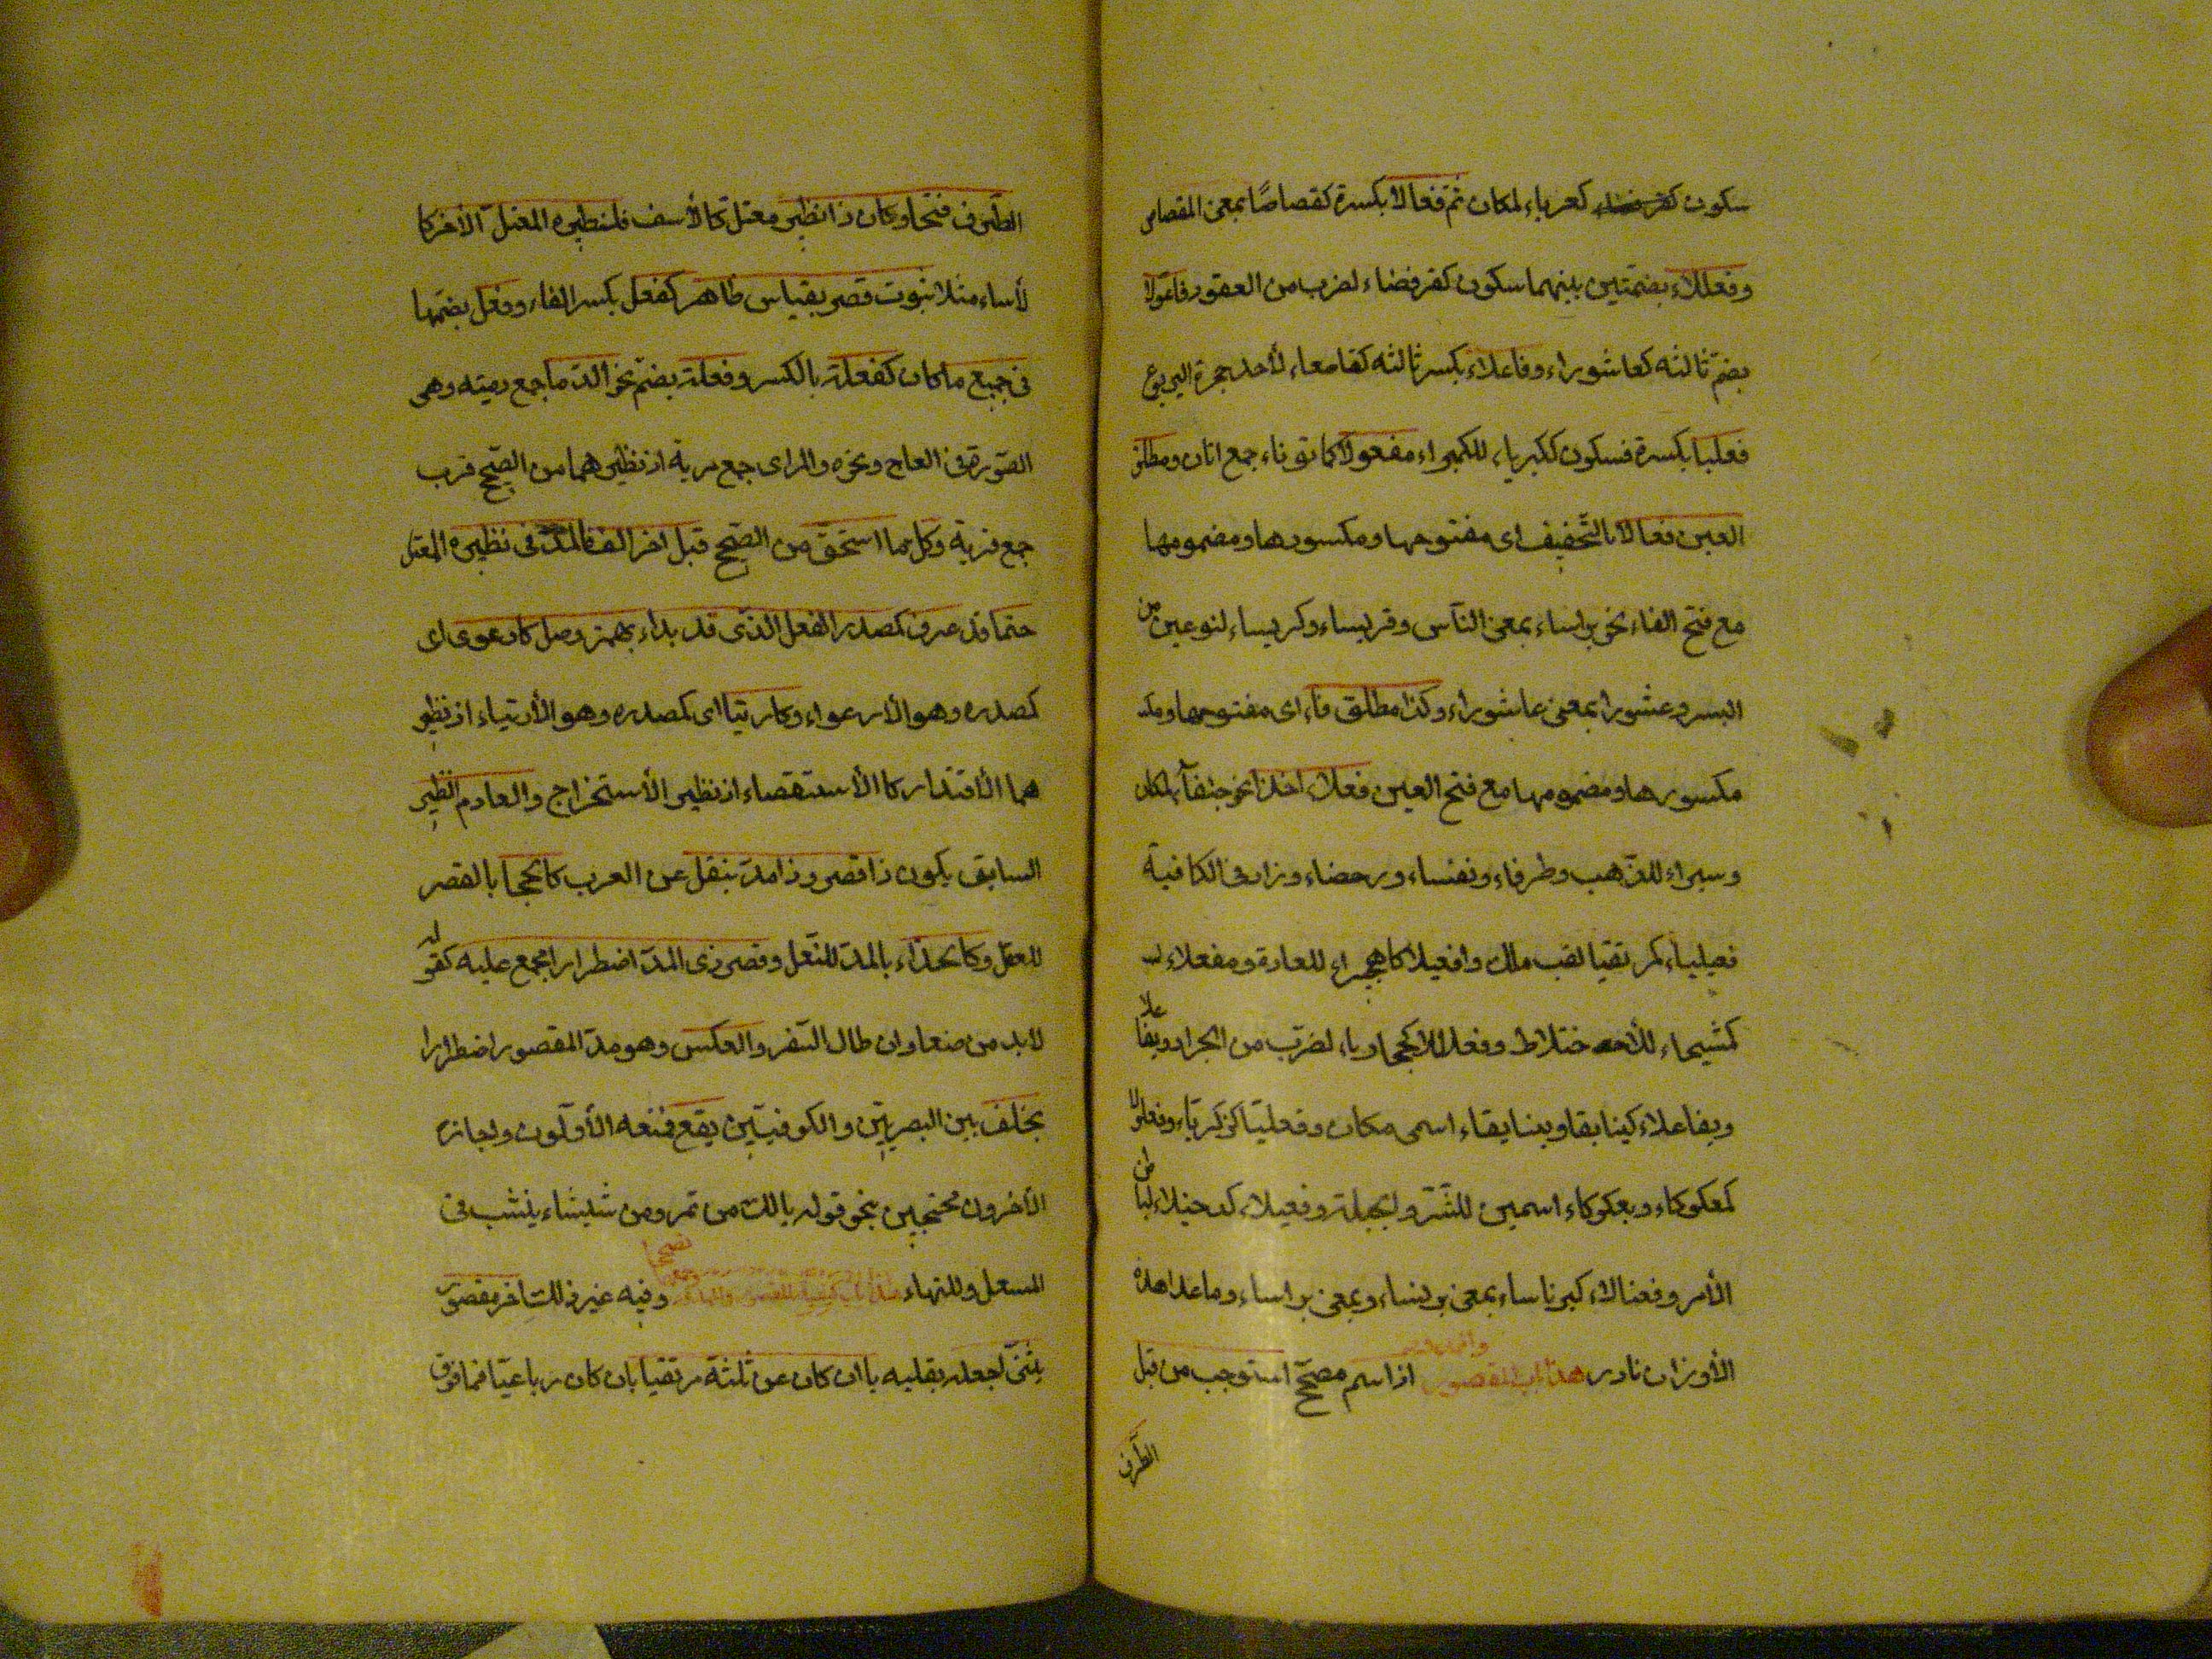 سكون كعرباء لمكان ثم فعالا بكسرة كقصاصًا بمعنى القصاص
وفعللاء بضمتين بينهما سكون كقرفضاء لضرب من العقود فاعولا
بضم ثالثه كعاشوراء وفاعلاء بكسر ثالثه كقاصعاء لأحد حجرة اليربوع
فعليا بكسرة فسكون ككبرياء للكبراء مفعولا كماتوناء جمع اتان ومطلق
العين فعالا بالتخفيف اى مفتوحها ومكسورها ومضمومها
مع فتح الفاء نحو براساء بمعنى الناس وقريساء وكريساء لنوعين من
البسر وعشورا بمعنى عاشوراء وكذا مطلق فاء اى مفتوحها ومك
مكسورها ومضمومها مع فتح العين فعلاء اخذا نحو جنفآء لمكان
وسيراء للذهب وطرفاء ونفساء ورحضاء وزاد فى الكافية
فعيلياء كمزيقيا لقب ملك وافعيلا كاهجيراء للعادة ومفعلاء
كمشيحاء للأختلاط وفعللا كجحادباء لضرب من الجراد ويفاعلا
ويفاعلاء كينابقا وينايقاء اسمى مكان وفعليّا كزكرياء وفعلولا
كمعكوكاء وبعكوكاء اسمين للشر ولجلبة وفعيلاء كدخيلاء لباطن
الأمر وفعنالاء كبرناساء بمعنى برنساء وبمعنى براساء وما عدا هذه
الأوزان نادر هذا باب المقصور والممدود اذا اسم مصحّح استوجب من قبل
الطرف
الطّرف فتحا وكان ذا نظير معتل كالأسف فلنظيره المعتلّ الآخر كا
لأساء مثلا ثبوت قصر بقياس ظاهر كفعل بكسر الفاء وفعل بضمها
فى جميع ما كان كفعلة بالكسر وفعلة بضم نحو الدما جمع دمية وهى
الصّورة فى العاج ونحوه والمراى جمع مرية اذ نظيرهما من الصّحيح قرب
جمع قربة وكل ما استحقّ من الصحيح قبل اخر الف فالمدّ فى نظيره المعتل
حتما قد عرف كمصدر الفعل الذى قد بداء بهمز وصل كارعوى اى
كمصدره وهو الأرعواء وكارتيا اى كمصدره وهو الأرتياء اذ نظير
هما الأقتدار كا الأستقصاء اذ نظير الأستخراج والعادم النّظير
السابق يكون ذا قصر وذا مدّ بنقل عن العرب كالحجا بالقصر
للعقل وكالحذاء بالمدّ للنّعل وقصر ذى المدّ اضطرارا مجمع عليه كقوله
لابد من صنعا وان طال السّفر والعكس وهو مدّ المقصور اضطرارا
بخلف بين البصريّين والكوفيّين يقع فمنعه الأوّلون واجازه
الآخرون محتجين بنحو قوله يالك من تمر ومن شيشاء ينشب فى
المسعل واللهاء هذا باب كيفية تثنية المقصور والممدود وجمعهما تصحيحا وفيه غير ذلك اخر مقصور
تثنى اجعله بقلبه يا ان كان عن ثلثة مرتقيا بان كان رباعيّا فما فوق